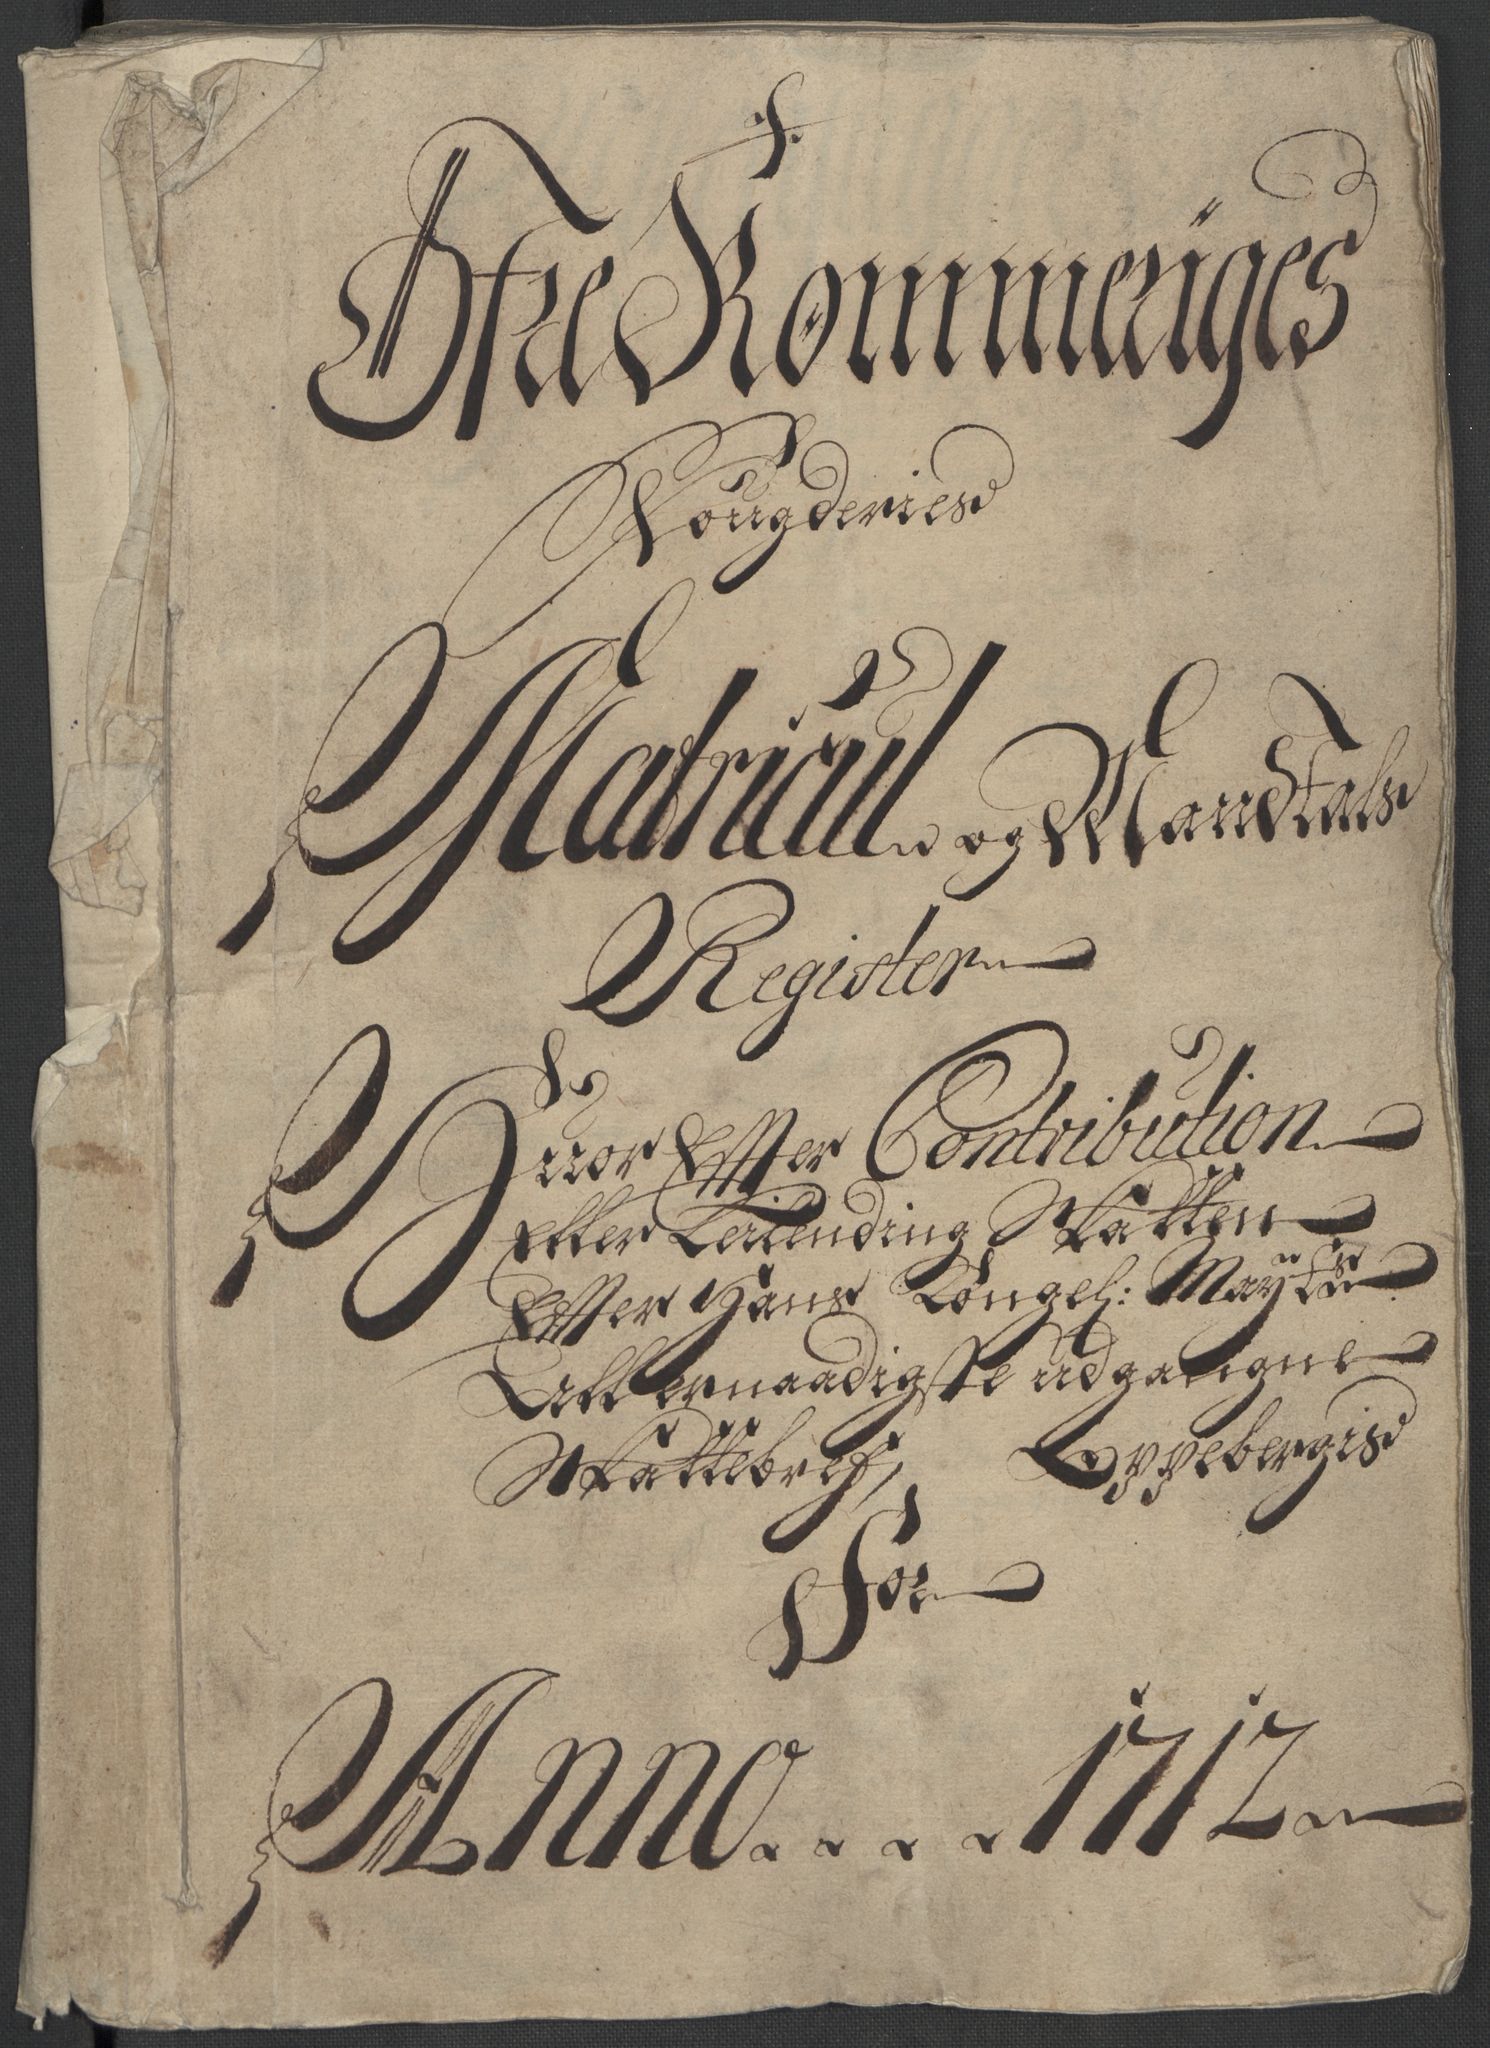 Øfre Rommeriges
Fougderies
Matricul og Mandtals
Register
Huor Effter Contribution
Eller Leilending Skatten
Effter Hans Kongel: Mayts
Allernaadigste udgangne
Skattebref, Oppebergis
For
Anno.... 1712